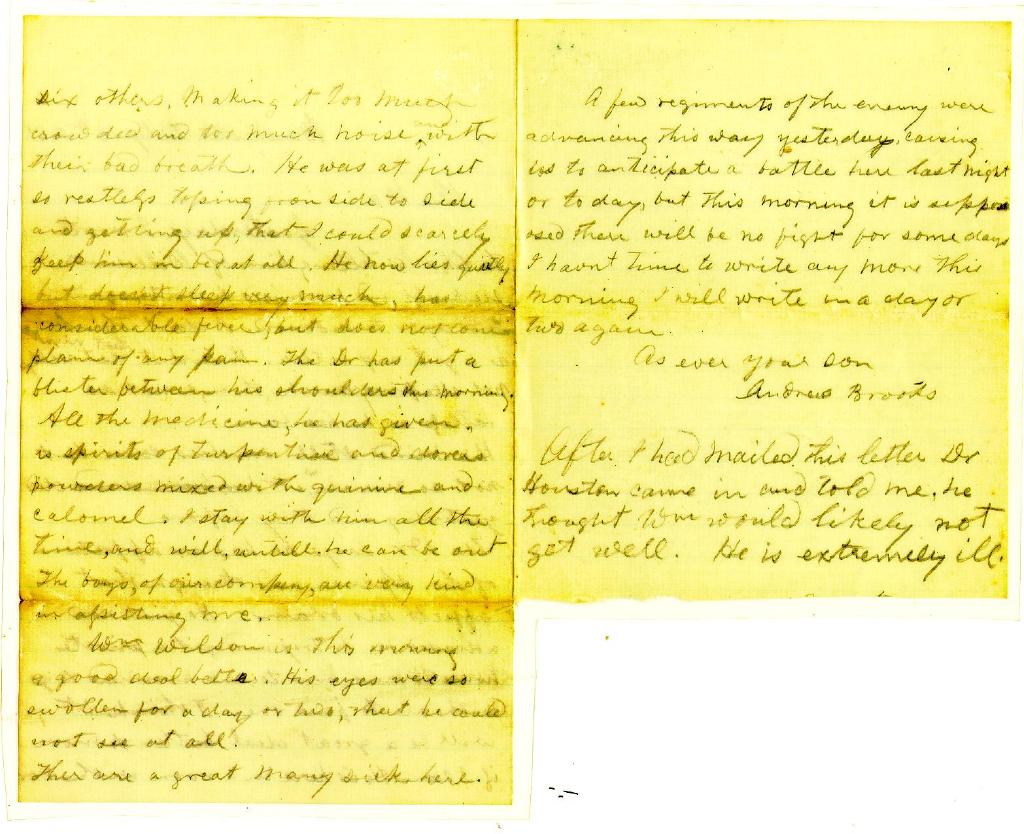 six others, Making it too much
crowded and too much noise and with
their bad breath. He was at first
so restless tossing from side to side
and getting up, that I could scarcely
keep him in bed at all. He now lies quietly
but doesnt sleep very much, has
considerable fever, but does not com
plain of any pain. The Dr has put a
blister between his shoulders this morning.
All the medicine, he has given,
is spirits of turpentine and dovers
powders mixed with quinine and
calomel. I stay with him all the
time, and will, untill he can be out
The boys, of our company, are very kind
in assisting me.
Wm Wilson is this morning
a good deal better. His eyes were so
swollen for a day or two, that he could
not see at all.
Ther are a great many sick here.
A few regiments of the enemy were
advancing this way yesterday, causing
us to anticipate a battle here last night
or to day, but this morning it is suppo
osed there will be no fight for some days
I havnt time to write any more this
morning I will write in a day or
two again
As ever your son
Andrew Brooks
After I had mailed this letter Dr
Houston came in and told me, he
thought Wm would likely not
get well. He is extremely ill.